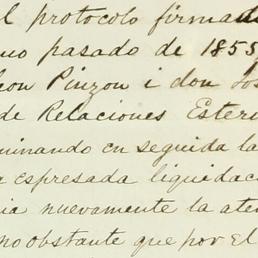 l protocolo firmad
uo pasado de 1855
con Pinzon i don Jos
de Relaciones Esteri
minando en seguida la
a espresada liquidac
ia nuevamente la aten
no obstante que por el